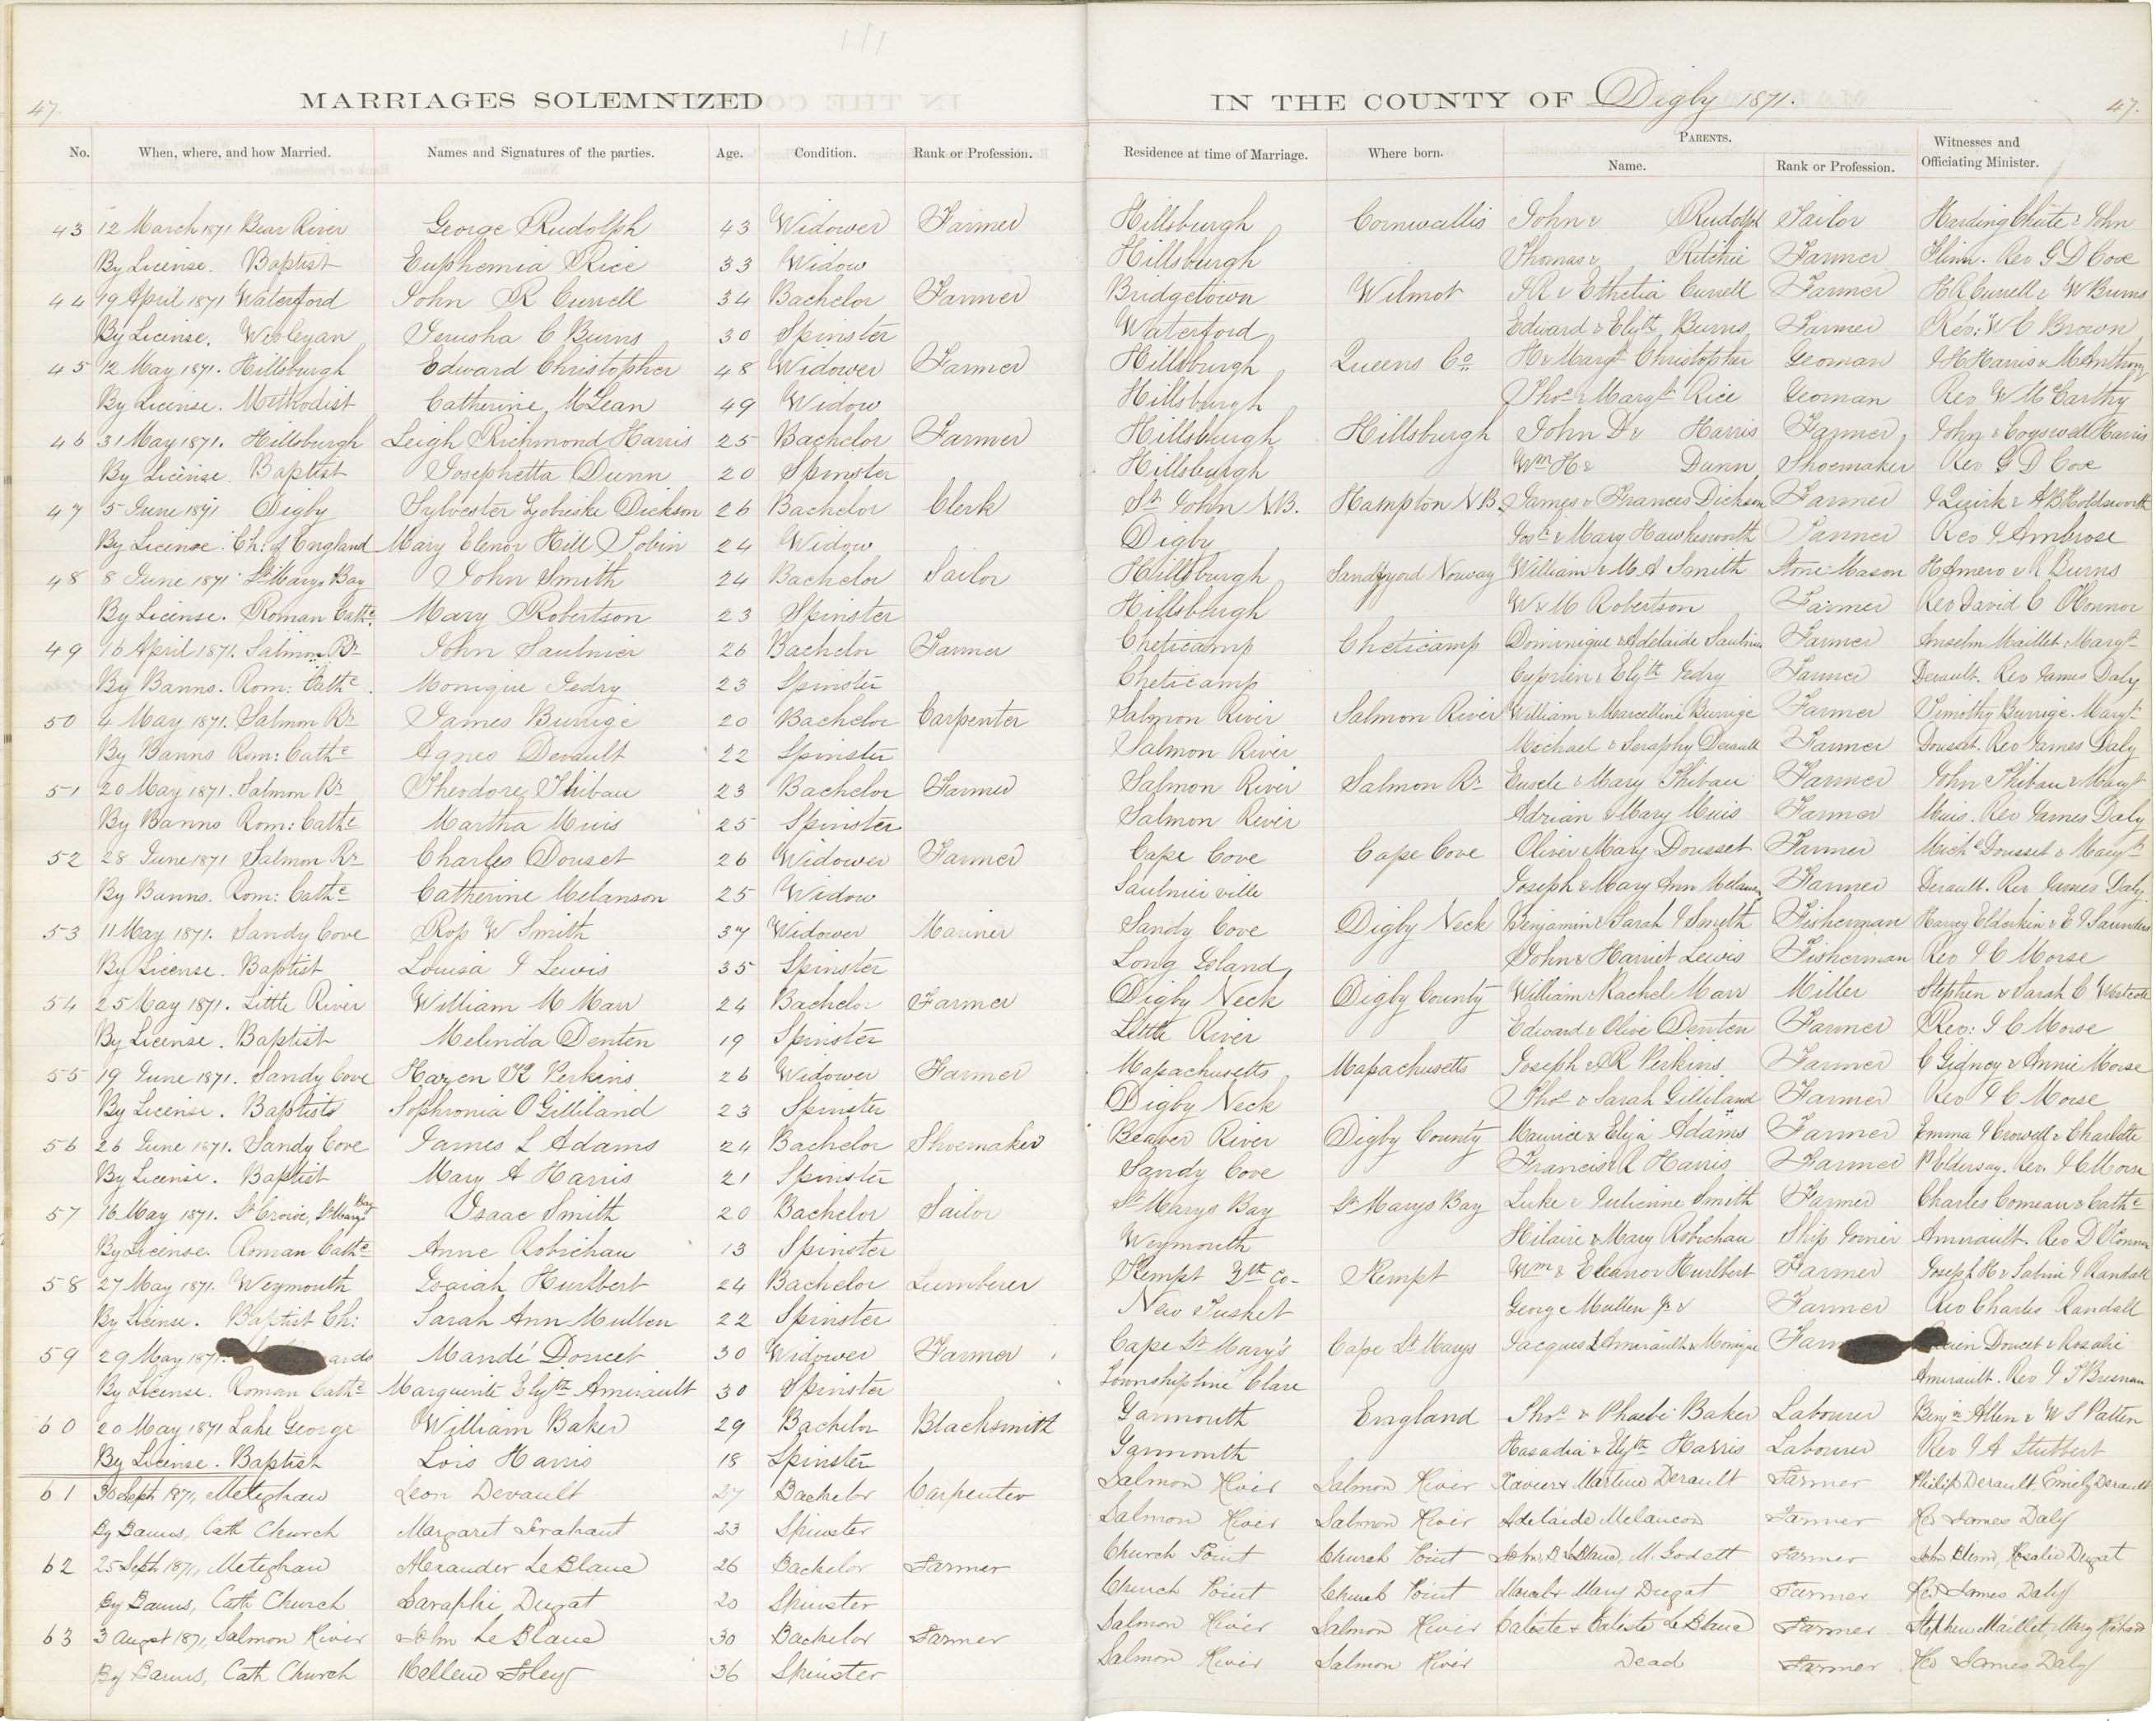 47.
MARRIAGES SOLEMNIZED IN THE COUNTY OF Digby 1871.
47.
No. When, where, and how Married. Names and Signatures of the parties. Age. Condition. Rank or Profession. Residence at time of Marriage. Where born. PARENTS. Name. Rank or Profession. Witnesses and Officiating Minister.
43 12 March 1871 Bear River George Rudolph 43 Widower Farmer Hillsburgh Cornwallis John & Rudolph Tailor Harding Chute & John
By License. Baptist Euphemia Rice 33 Widow Hillsburgh Thomas & Ritchie Farmer Flinn. Rev G D Cox
44 19 April 1871 Waterford John R Currell 34 Bachelor Farmer Bridgetown Wilmot J R & Ethelia Currell Farmer H R Currell & W Burns
By License. Wesleyan Jerusha C Burns 30 Spinster Waterford Edward & Elizth Burns Farmer Rev: W C Brown
45 12 May 1871. Hillsburgh Edward Christopher 48 Widower Farmer Hillsburgh Queens Co H & Margt Christopher Yeoman J H Harris & M Anthony
By License. Methodist Catherine McLean 49 Widow Hillsburgh Thos & Maryt Rice Yeoman Rev W McCarthy
46 31 May 1871. Hillsburgh Leigh Richmond Harris 25 Bachelor Farmer Hillsburgh Hillsburgh John D & Harris Farmer John & Cogswell Harris
By License. Baptist Josephetta Dunn 20 Spinster Hillsburgh Wm H & Dunn Shoemaker Rev G D Cox
47 5 June 1871 Digby Sylvester Zobieske Dickson 26 Bachelor Clerk St John N.B. Hampton N B. James & Frances Dickson Farmer J Quirk & A B Holdsworth
By License. Ch: of England Mary Elenor Hill Tobin 24 Widow Digby Jos: & Mary Hawkesworth Tanner Rev J Ambrose
48 8 June 1871. St Marys Bay John Smith 24 Bachelor Sailor Hillsburgh Sandyjord Norway William & M A Smith Stone Mason H Amero & R Burns
By License. Roman Cathc. Mary Robertson 23 Spinster Hillsburgh W & M Robertson Farmer Rev David C O'Connor
49 16 April 1871. Salmon Rr John Saulnier 26 Bachelor Farmer Cheticamp Cheticamp Dominique & Adelaide Saulnier Farmer Anselm Maillet & Maryt
By Banns. Rom: Cathc. Monique Jedry 23 Spinster Cheticamp Cyprien & Elyth Jedry Farmer Derault. Rev James Daly
50 4 May 1871. Salmon Rr James Burrige 20 Bachelor Carpenter Salmon River Salmon River William & Marcelline Burrige Farmer Timothy Burrige. Maryt
By Banns Rom: Cathc Agnes Devault 22 Spinster Salmon River Michael & Seraphy Derault Farmer Dousset. Rev James Daly
51 20 May 1871. Salmon Rr Theodore Thibau 23 Bachelor Farmer Salmon River Salmon Rr Eusele & Mary Thibau Farmer John Thibau & Maryt
By Banns Rom: Cathc Martha Muis 25 Spinster Salmon River Adrian & Mary Muis Farmer Muis. Rev James Daly
52 28 June 1871 Salmon Rr Charles Douset 26 Widower Farmer Cape Cove Cape Cove Oliver & Mary Dousset Farmer Michl Dousset & Maryt
By Banns. Rom: Cathc Catherine Melanson 25 Widow Saulnierville Joseph & Mary Ann Melanson Farmer Derault. Rev James Daly
53 11 May 1871. Sandy Cove Ross W Smith 37 Widower Mariner Sandy Cove Digby Neck Benjamin & Sarah J Smith Fisherman Harvey Elderkin & E J Saunders
By License. Baptist Louisa J Lewis 35 Spinster Long Island John & Harriet Lewis Fisherman Rev J C Morse
54 25 May 1871. Little River William M Marr 24 Bachelor Farmer Digby Neck Digby County William & Rachel Marr Miller Stephen & Sarah C Westcott
By License. Baptist Melinda Denten 19 Spinster Little River Edward & Olive Denten Farmer Rev: J C Morse
55 19 June 1871. Sandy Cove Hazen K Perkins 26 Widower Farmer Massachusetts Massachusetts Joseph & R Perkins Farmer C Gidney & Annie Morse
By License. Baptists Sophronia O Gilliland 23 Spinster Digby Neck Thos & Sarah Gilliland Farmer Rev J C Morse
56 26 June 1871. Sandy Cove James L Adams 24 Bachelor Shoemaker Beaver River Digby County Maurice & Eliza Adams Farmer Emma J Crowell & Charlotte
By License. Baptist Mary A Harris 21 Spinster Sandy Cove Francis & R Harris Farmer P Eldersay. Rev. J C Morse
57 16 May 1871. St Croix, St Marys Bay Isaac Smith 20 Bachelor Sailor St Marys Bay St Marys Bay Luke & Julienne Smith Farmer Charles Comeau & Cathe
By License. Roman Cathc Anne Robichau 13 Spinster Weymouth Hilaire & Mary Robichau Ship Joiner Amirault. Rev D O'Connor
58 27 May 1871. Weymouth Isaiah Hurlbert 24 Bachelor Lumberer Kempt Yth Co. Kempt Wm & Eleanor Hurlbert Farmer Joseph H & Sabine J Randall
By License. Baptist Ch: Sarah Ann Mullen 22 Spinster New Tusket George Mullen Jr & Farmer Rev Charles Randall
59 29 May 1871. Mandé Doucet 30 Widower Farmer Cape St Mary's Cape St Marys Jacques L Amirault & Monique Doucet & Rosalie
By License. Roman Cathc Marguerite Elyth Amirault 30 Spinster Township line Clare Amirault. Rev J T Bresnan
60 20 May 1871 Lake George William Baker 29 Bachelor Blacksmith Yarmouth England Thos & Phoebe Baker Labourer Benjn Allen & W S Patten
By License. Baptist Lois Harris 18 Spinster Yarmouth Hasadia & Elyth Harris Labourer Rev J A Stubbert
61 30 Septr 1871, Meteghan Leon Devault 27 Bachelor Carpenter Salmon River Salmon River Xavier & Martine Derault Farmer Philip Derault, Emily Derault
By Banns, Cath Church Margaret Frahant 23 Spinster Salmon River Salmon River Adelaide Melancon Farmer Rev James Daly
62 25 Septr 1871, Meteghan Alexander LeBlanc 26 Bachelor Farmer Church Point Church Point John B LeBlanc, M. Godett Farmer John Blinn, Rosalie Dugat
By Banns, Cath Church Saraphie Dugat 20 Spinster Church Point Church Point Marcel & Mary Dugat Farmer Rev James Daly
63 3 August 1871, Salmon River John LeBlanc 30 Bachelor Farmer Salmon River Salmon River Caliste & Caliste LeBlanc Farmer Stephen Maillet, Mary Richard
By Banns, Cath Church Hellen Foley 36 Spinster Salmon River Salmon River Dead Farmer Rev James Daly